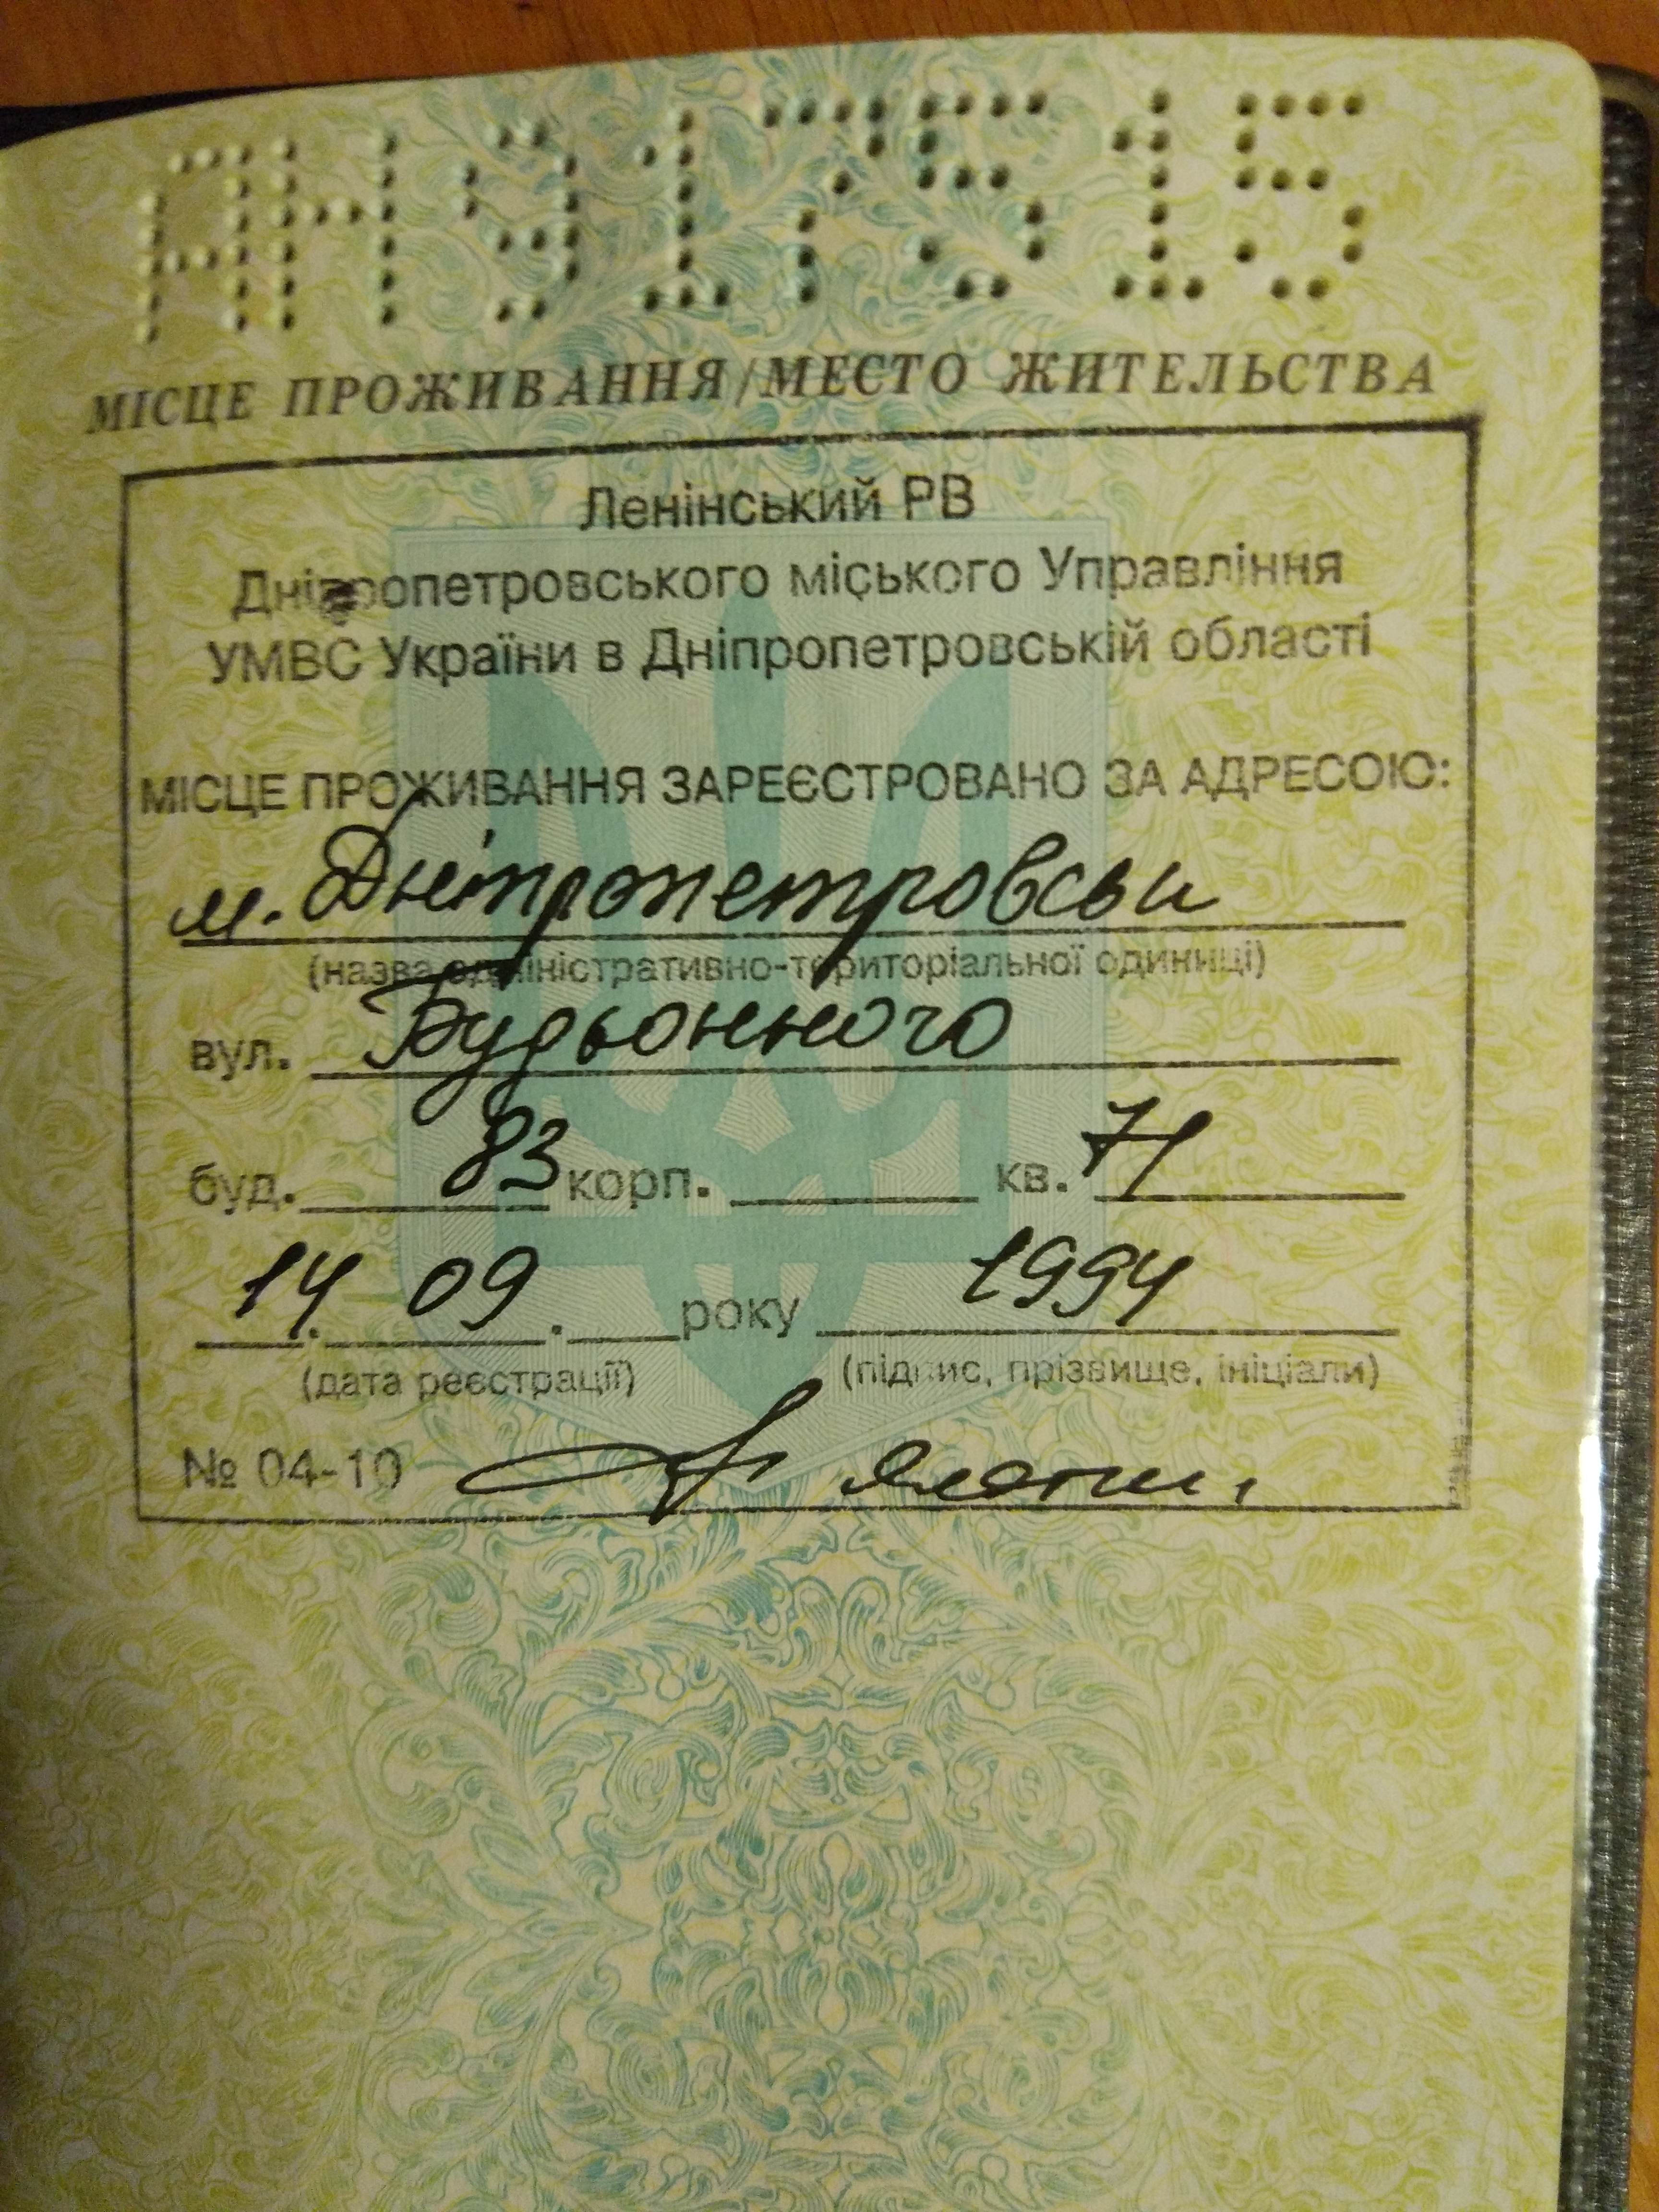 АН917515
МІСЦЕ ПРОЖИВАННЯ/МЕСТО ЖИТЕЛЬСТВА
Ленінський РВ
Дніпропетровського міського Управління
УМВС України в Дніпропетровській області
МІСЦЕ ПРОЖИВАННЯ ЗАРЕЄСТРОВАНО ЗА АДРЕСОЮ:
м. Дніпропетровськ
(назва адміністративно-територіальної одиниці)
вул. Будьонного
буд. 83 корп. кв. 71
14. 09. року 1994
(дата реєстрації) (підпис, прізвище, ініціали)
№ 04-10